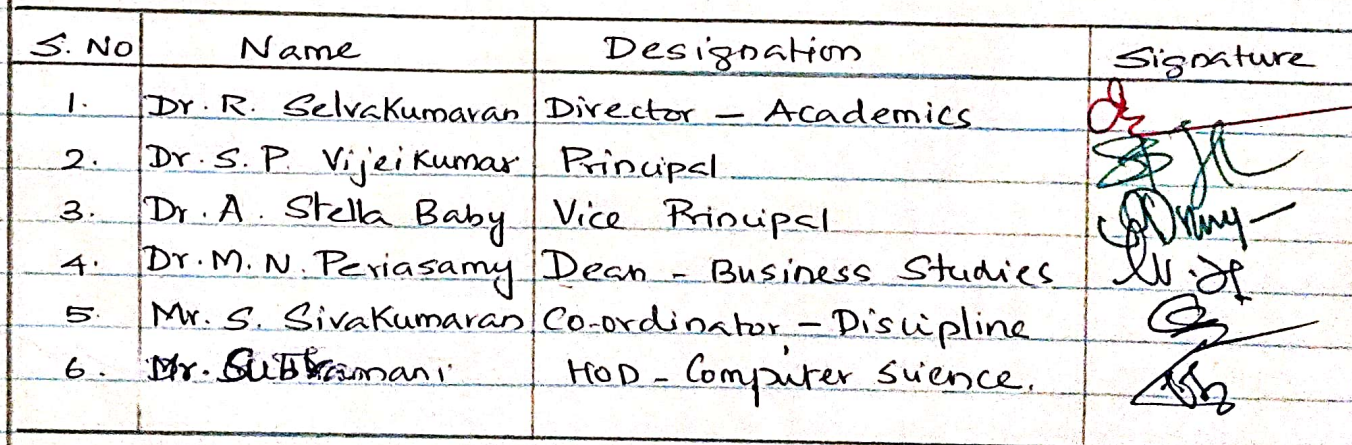 S. No Name Designation Signature
1. Dr. R. Selvakumaran Director - Academics
2. Dr. S. P. Vijeikumar Principal
3. Dr. A. Stella Baby Vice Principal
4. Dr. M. N. Periasamy Dean - Business Studies
5. Mr. S. Sivakumaran Co-ordinator - Discipline
6. Mr. Subramani HOD - Computer Science.